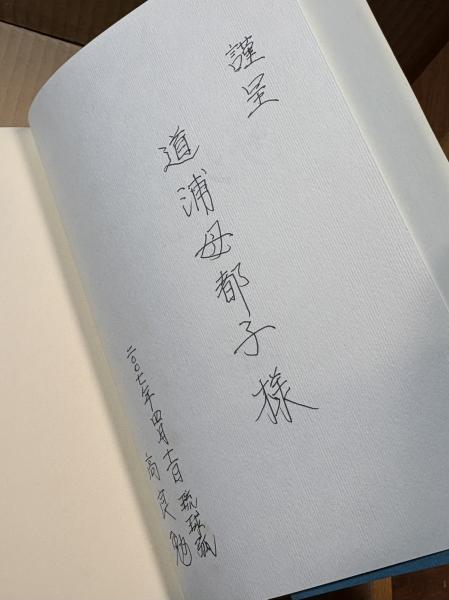 謹呈
道浦母都子様
二〇〇七年四月
高良勉
琉球弧